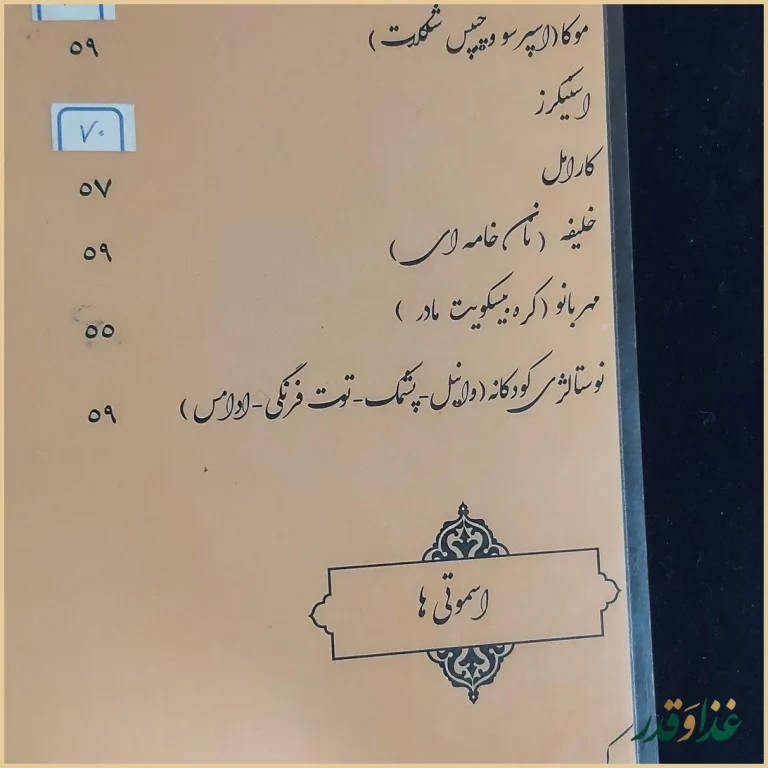 موکا (اسپرسو و چیپس شکلات) ۵۹
اسنیکرز ۷۰
کارامل ۵۷
خلیفه (نان خامه ای) ۵۹
مهربانو (کره بیسکویت مادر) ۵۵
نوستالژی کودکانه (وانیل-پشمک-توت فرنگی-ادامس) ۵۹
اسموتی ها
غذا و قدر